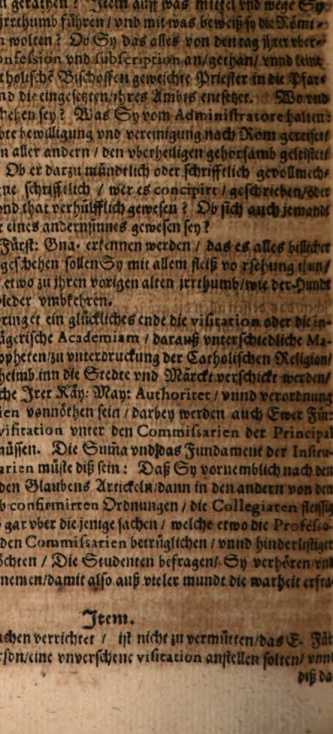 gerathen? Item auß was mittel vnd wege Sy
jrrthumb führen / vnd mit was beweiß sy die Römi-
wolten? Ob Sy das alles von den tag jhrer vber-
onfession vnd subscription an/gethan/ vnnd
tholische Bischoffen geweichte Priester in die Pfar-
nd die eingesetzten/jhres Ambts entsetzet. Wo vnd
hehen sey? Was Sy vom Administratore halten:
bte bewilligung vnd vereinigung nach Rom gereiset/
n aller andern / den vberheiligen gehorsamb geleistet/
Ob er darzu mündtlich oder schrifftlich gevollmech-
ne schrifftlich / wer es concipirt / geschrieben/oder
ond that verhülfflich gewesen? Ob sich auch jemands
r eines andern sinnes gewesen sey?
Fürst: Gna. erkennen werden / das es alles billicher
geschehen sollen Sy mit allem fleiß vorsehung thun/
etwo zu jhren vorigen alten jrrthumb/wie der Hundt
wieder vmbkehren.
ringet ein glückliches ende die visitation oder die in-
ägerische Academiam / darauß vnterschiedliche Ma-
opheten/zu vnterdruckung der Catholischen Religion/
heimb inn die Stedte vnd Märckt verschickt werden/
che Jrer Käy: May: Authoritet / vnnd verordnung
ien vonnöthen sein / darbey werden auch Ewer Für:
visitation vnter den Commissarien der Principal
müssen. Die Suma vnd das Fundament der Instru-
arien müste diß sein: Daß Sy vornemblich nach den
den Glaubens Artickeln/dann in den andern von den
b confirmirten Ordnungen / die Collegiaten fleissig
gar vber die jenige sachen / welche etwo die Professo-
den Commissarien betrüglichen / vnnd hinderlistiger
öchten / Die Studenten befragen/ Sy verhören/vnd
nemen/damit also auß vieler munde die warheit erfra-
Item.
achen verrichtet / ist nicht zu vermutten/das E. Für
rson/eine vnversehene visitation anstellen solten/ vnnd
diß da